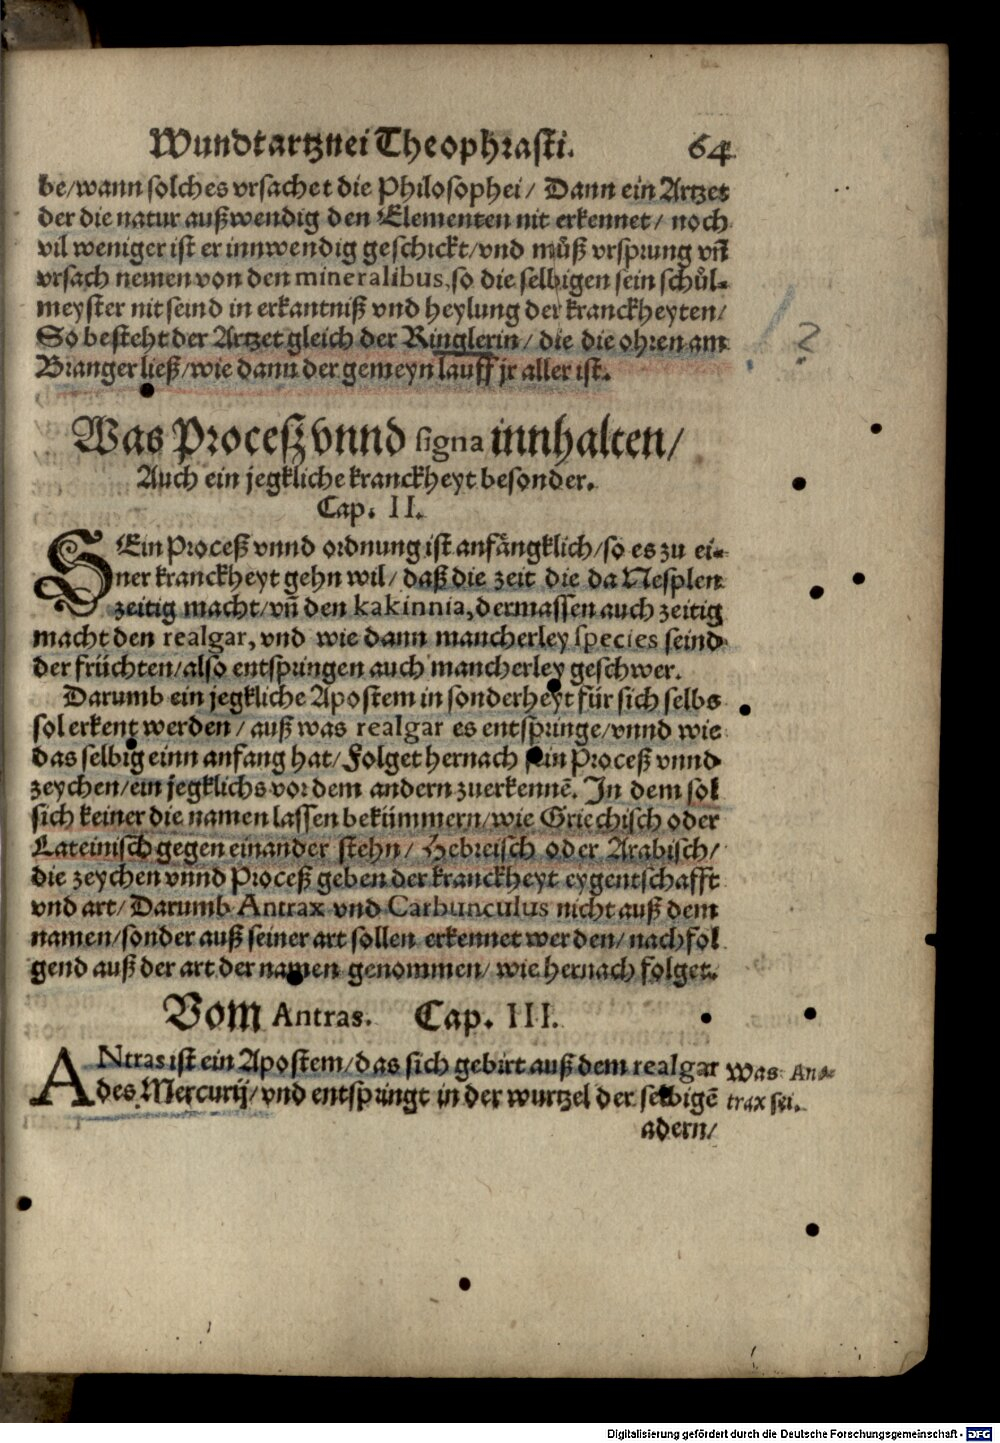 Wundtartznei Theophrasti. 64
be/wann solches vrsachet die Philosophei/ Dann ein Artzet
der die natur außwendig den Elementen nit erkennet/ noch
vil weniger ist er innwendig geschickt/vnd můß vrsprung vñ
vrsach nemen von den mineralibus,so die selbigen sein schůl-
meyster nit seind in erkantniß vnd heylung der kranckheyten/
So besteht der Artzet gleich der Ringlerin/ die die ohren am
Branger ließ/wie dann der gemeyn lauff jr aller ist.
Was Proceß vnnd signa innhalten/
Auch ein jegkliche kranckheyt besonder.
Cap. II.
SEin Proceß vnnd ordnung ist anfängklich/so es zu ei-
ner kranckheyt gehn wil/ daß die zeit die da Nesplen
zeitig macht/vñ den kakinnia,dermassen auch zeitig
macht den realgar, vnd wie dann mancherley species seind
der früchten/also entspringen auch mancherley geschwer.
Darumb ein jegkliche Apostem in sonderheyt für sich selbs
sol erkent werden/ auß was realgar es entspringe/vnnd wie
das selbig einn anfang hat/Folget hernach sein Proceß vnnd
zeychen/ein jegklichs vor dem andern zuerkennē. In dem sol
sich keiner die namen lassen bekümmern/wie Griechisch oder
Lateinisch gegen einander stehn/ Hebreisch oder Arabisch/
die zeychen vnnd Proceß geben der kranckheyt eygentschafft
vnd art/ Darumb Antrax vnd Carbunculus nicht auß dem
namen/sonder auß seiner art sollen erkennet werden/ nachfol
gend auß der art der namen genommen/ wie hernach folget.
Vom Antras. Cap. III.
ANtras ist ein Apostem/das sich gebirt auß dem realgar
des Mercurij/vnd entspringt in der wurtzel der selbigē
adern/
Was An-
trax sei.
?
Digitalisierung gefördert durch die Deutsche Forschungsgemeinschaft - DFG